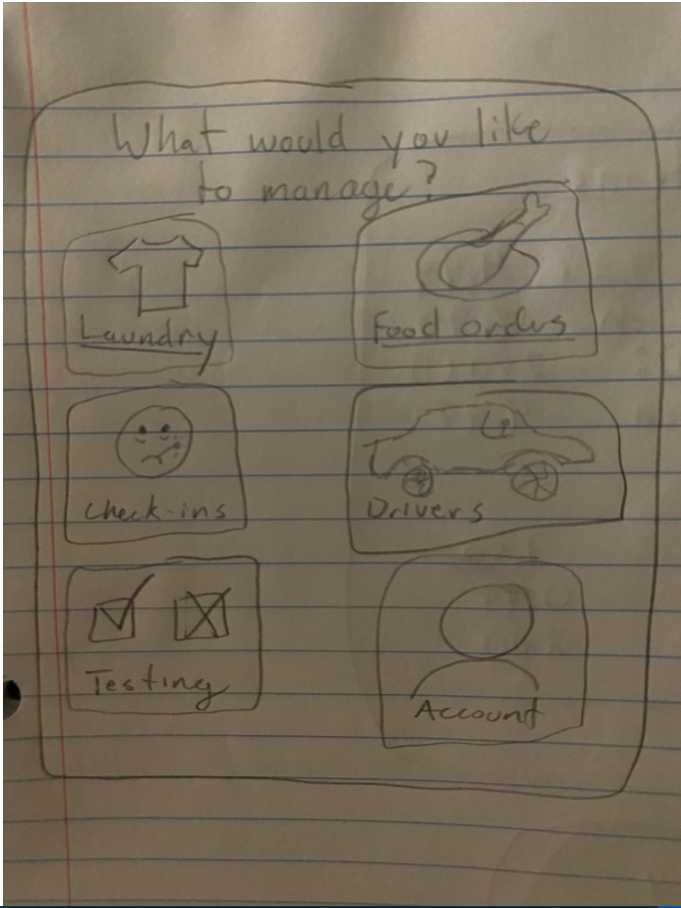 What would you like
to manage?
Laundry
Food orders
Check-ins
Drivers
Testing
Account